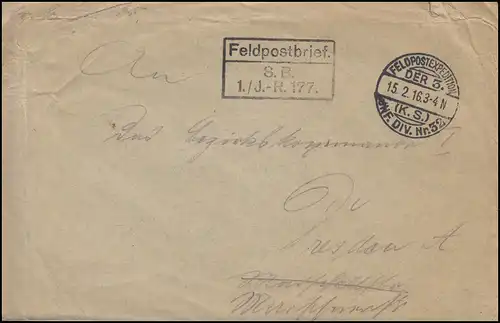 Feldpostbrief.
S. B.
1./J.-R. 177.
FELDPOSTEXPEDITION
DER 3.
15.2.16.3-4 N
(K.S.)
INF. DIV. Nr. 32
An
Das Bezirkskommando I
Dresden A